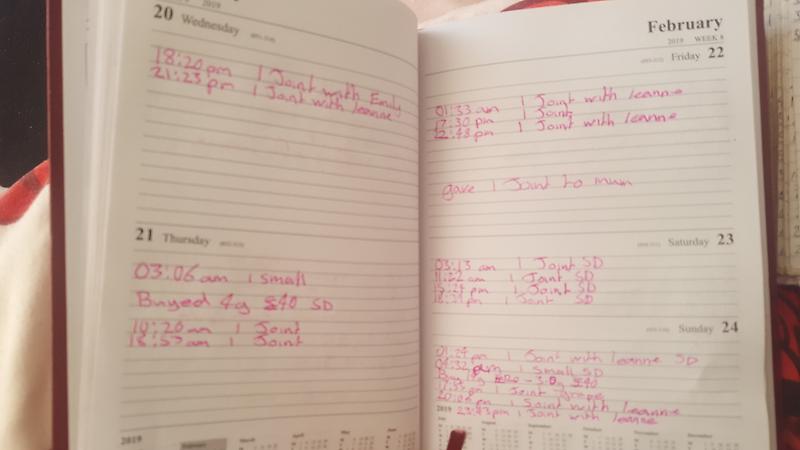 20 Wednesday
18:20pm 1 Joint with Emily
21:23pm 1 Joint with leanne
21 Thursday
03:06am 1 small
Buyed 4g £40 SD
10:20am 1 Joint
18:57am 1 Joint
2019
February March April May June
February
2019 WEEK 8
Friday 22
01:33 am 1 Joint with leanne
17:30 pm 1 Joint
22:48 pm 1 Joint with leanne
gave 1 Joint to mum
Saturday 23
03:13 am 1 Joint SD
11:22 am 1 Joint SD
15:24 pm 1 Joint SD
1 Joint SD
Sunday 24
01:24 pm 1 Joint with leanne SD
04:32 pm 1 small SD
£40
1 Joint
20:06 pm 1 Joint with leanne
2019 23:43pm 1 Joint with leanne
July August September October November December